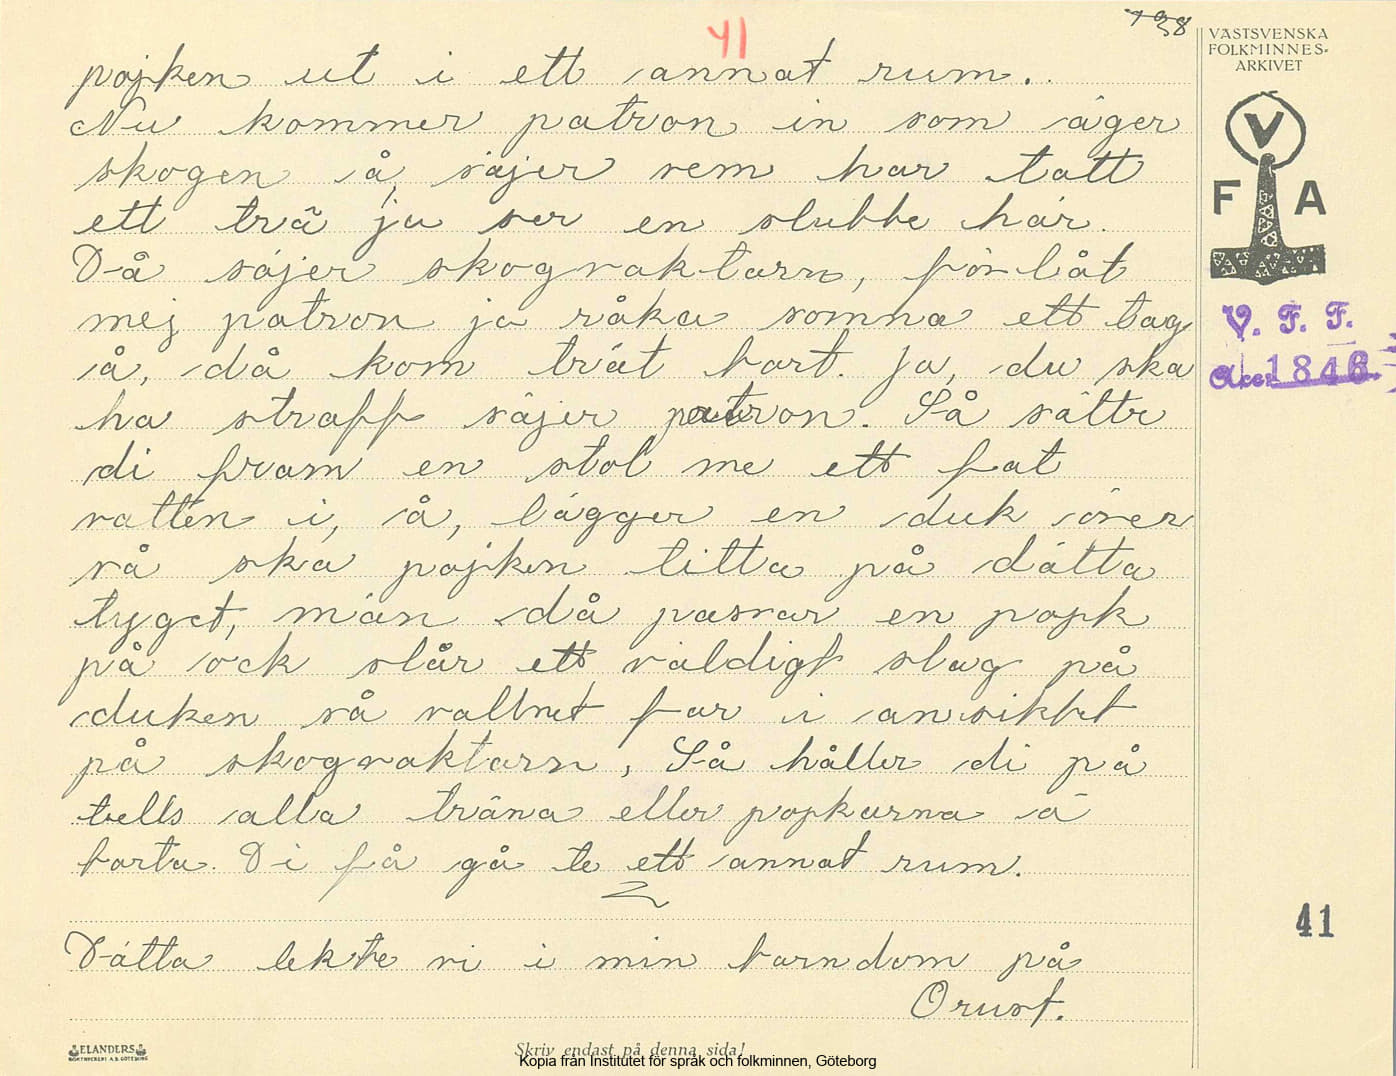 41
738
VÄSTSVENSKA
FOLKMINNES-
ARKIVET
V
F A
V. F. F.
Acc. 1846.
pojken ut i ett annat rum.
Nu kommer patron in som äger
skogen å, säjer vem har tatt
ett trä ja ser en stubbe här.
Då säjer skogvaktarn, förlåt
mej patron ja råka somna ett tag
å, då kom trät bort. Ja, du ska
ha straff säjer patron. Så sätte
di fram en stol me ett fat
vatten i, å, lägger en duk över
så ska pojken titta på dätta
tyget, män då passar en pojk
på ock slår ett väldigt slag på
duken så vattnet far i ansiktet
på skogvaktarn, Så håller di på
tells alla träna eller pojkarna ä
borta. Di få gå te ett annat rum.
Dätta lekte vi i min barndom på
Orust.
41
ELANDERS
BOKTRYCKERI A.B. GÖTEBORG
Skriv endast på denna sida!
Kopia från Institutet för språk och folkminnen, Göteborg